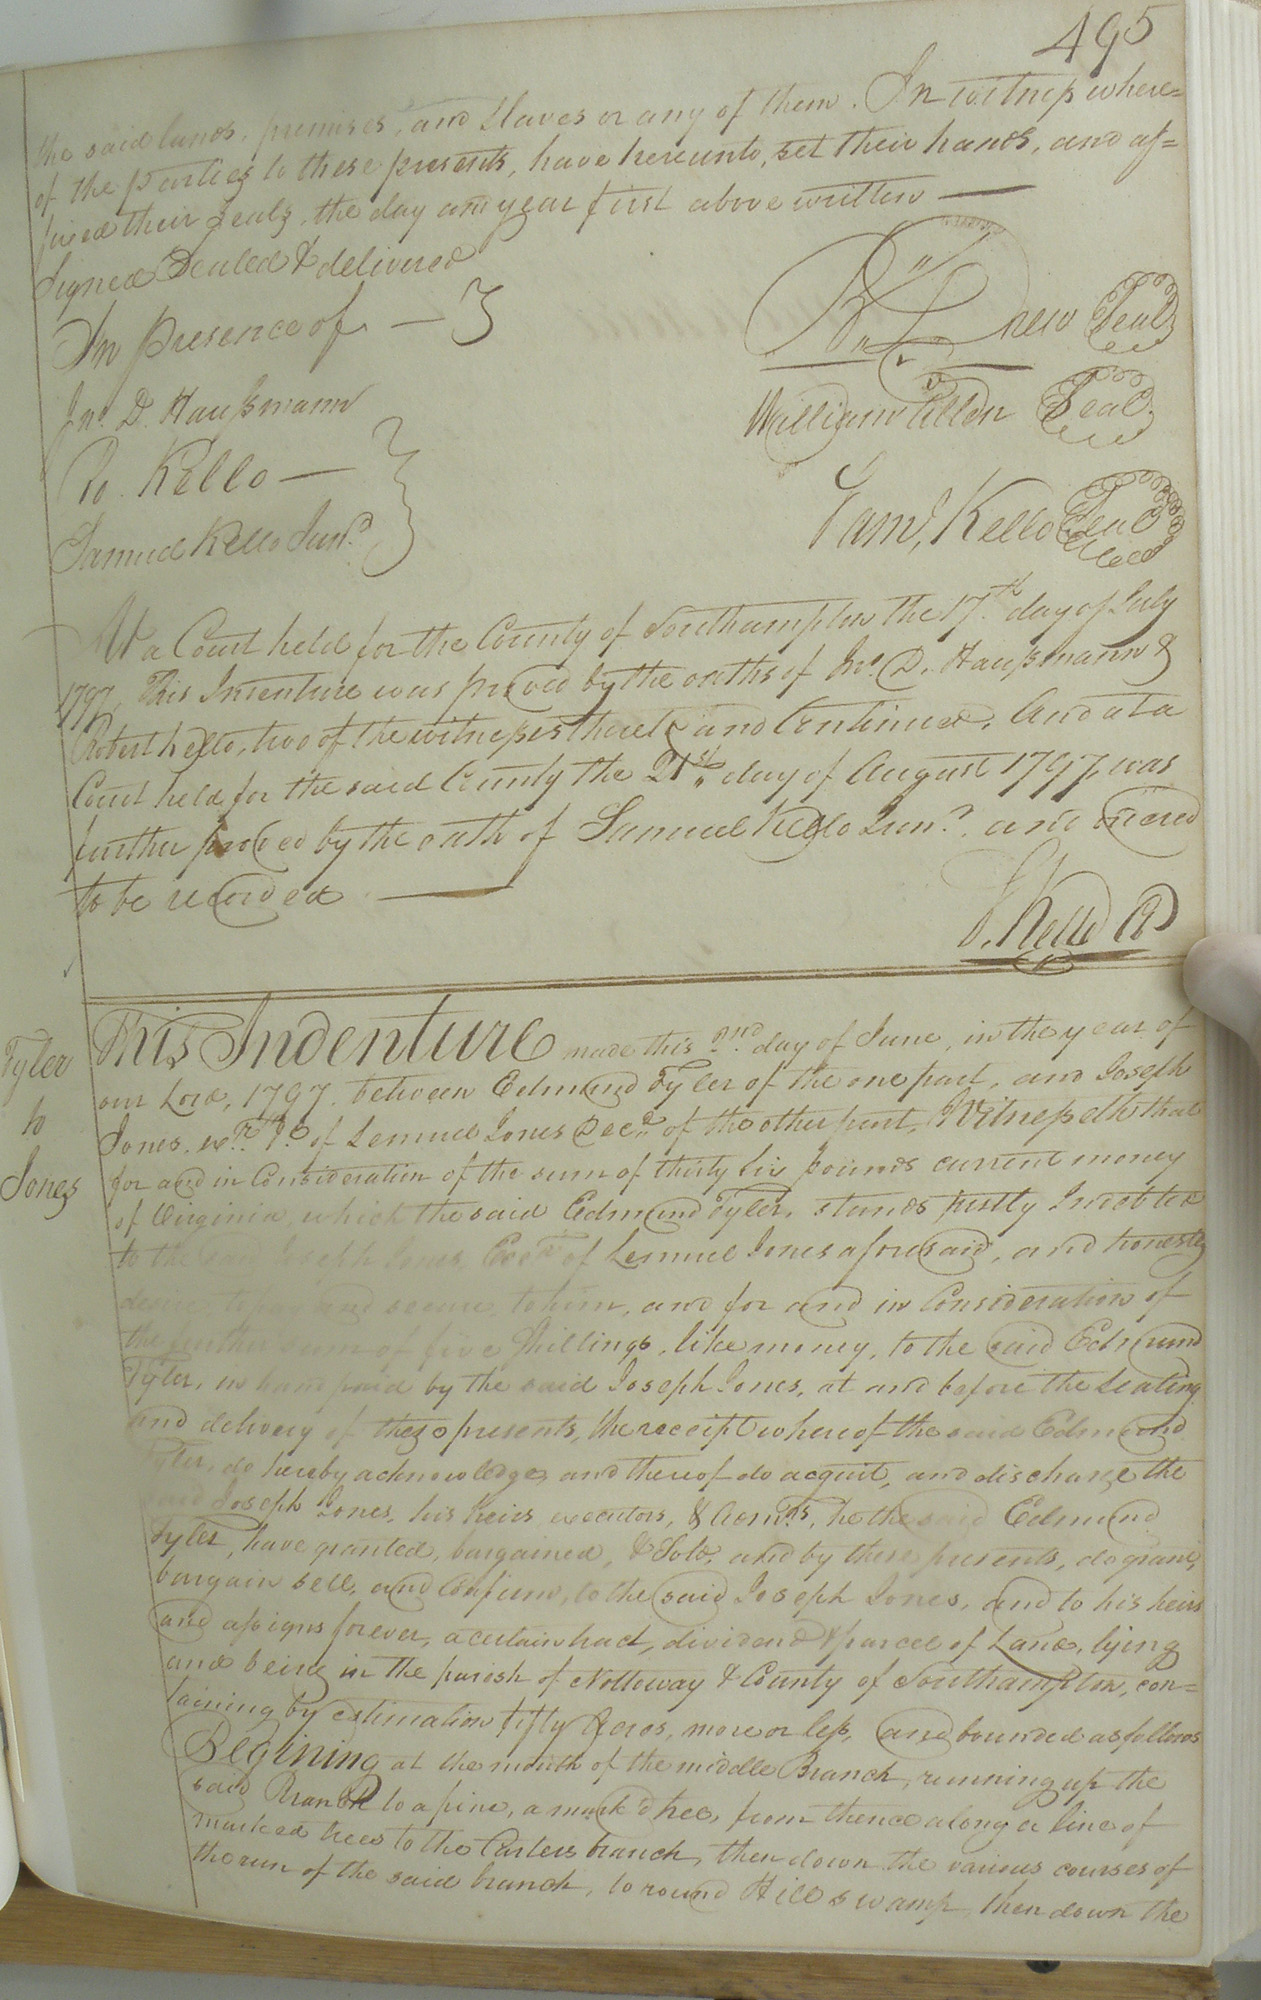 495
the said lands, premises, and Slaves or any of them. In witness where=
of the parties to these presents, have hereunto, set their hands, and af=
fixed their Seals, the day and year first above written
Signed Sealed & delivered
In presence of
Jno. D. Haussmann
Ro. Kello
Samuel Kello Junr.
Drew Seal
William Allen Seal
Saml. Kello Seal
At a Court held for the County of Southampton the 17th day of July
1797, This Indenture was proved by the oaths of Jno. D. Haussmann &
Robert Kello, two of the witnesses thereto and Continued. And at a
Court held for the said County the 21st day of August 1797, was
further proved by the oath of Samuel Kello Junr. and ordered
to be recorded
S. Kello
Tyler
to
Jones
This Indenture made this 2nd day of June, in the year of
our Lord, 1797. between Edmund Tyler of the one part, and Joseph
Jones, exr. of Lemuel Jones Decd. of the other part, Witnesseth that
for and in Consideration of the sum of thirty six pounds current money
of Virginia, which the said Edmund Tyler, stands justly Indebted
to the said Joseph Jones Exer. of Lemuel Jones aforesaid, and honestly
desire to pay and secure to him, and for and in Consideration of
the further sum of five Shillings, like money, to the said Edmund
Tyler, in hand paid by the said Joseph Jones, at and before the Sealing
and delivery of these presents, the receipt whereof the said Edmund
Tyler, do hereby acknowledge, and thereof do acquit, and discharge the
said Joseph Jones, his heirs executors, & Admrs, he the said Edmund
Tyler, have granted, bargained, & Sold, and by these presents, do grant,
bargain sell, and Confirm, to the said Joseph Jones, and to his heirs
and assigns forever, a certain tract, dividend & parcel of Land, lying
and being in the parish of Nottoway & County of Southampton, con=
taining by estimation fifty Acres, more or less, and bounded as follows
Begining at the mouth of the middle Branch, running up the
said Branch to a pine, a mark'd tree, from thence along a line of
marked trees to the Carters branch, then down the various courses of
the run of the said branch, to round Hill swamp, then down the